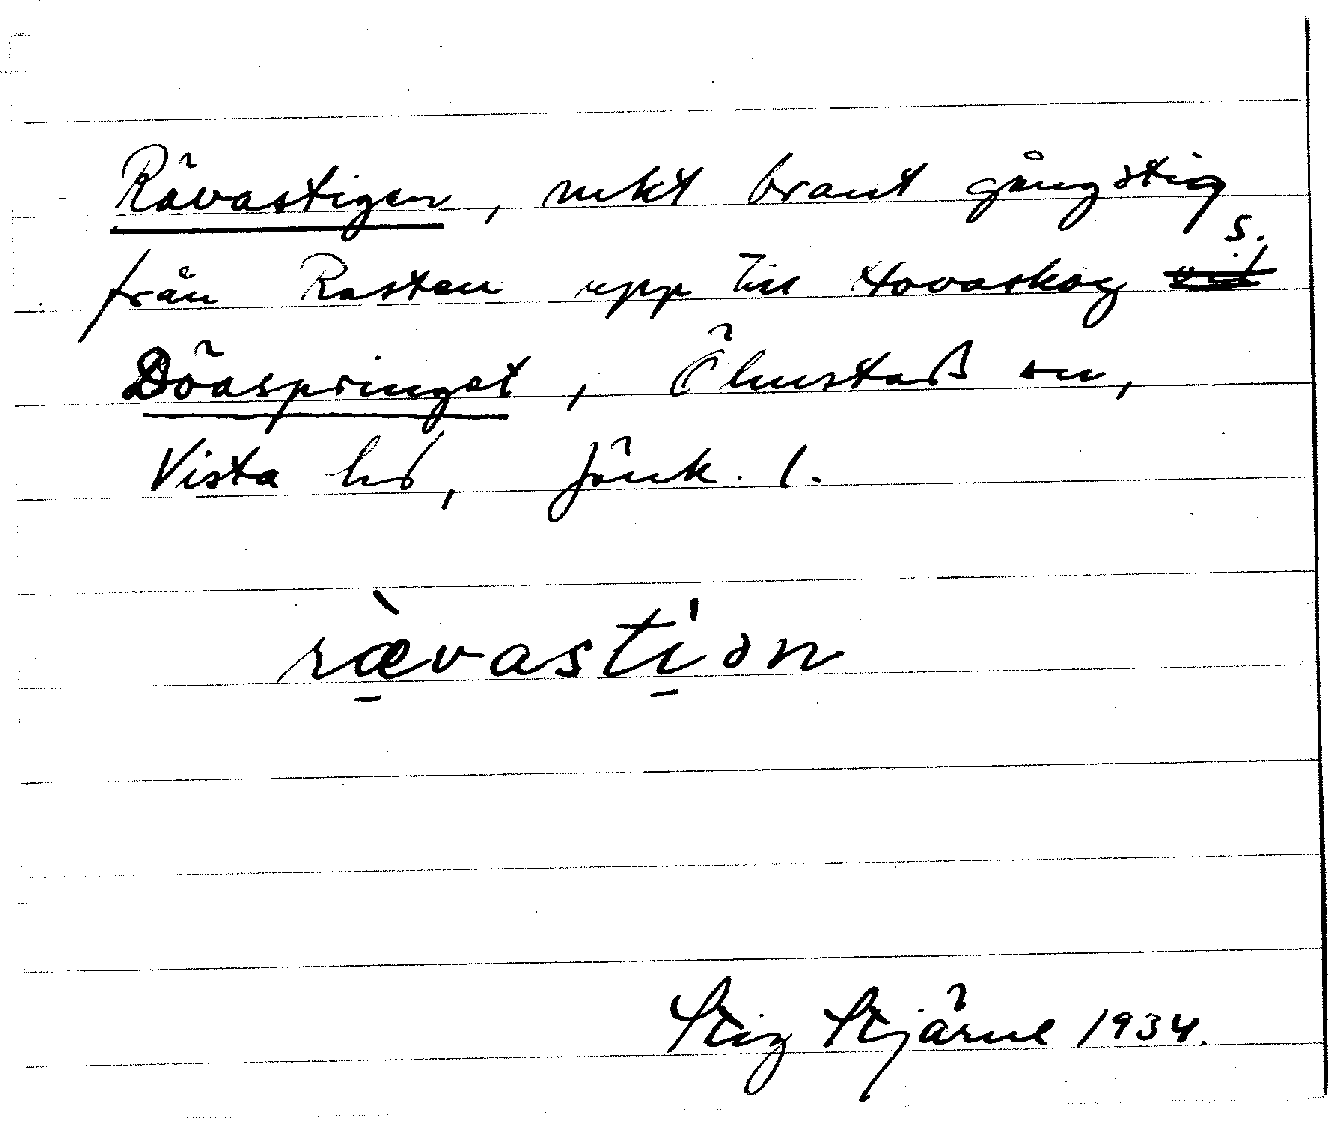 Rävastigen, mkt brant gångstig
från Rasten upp till Hovaskog s. vid
Döaspringet, Ölmstad sn,
Vista hd, Jönk. l.
rävastiọn
Stig Stjärne 1934.